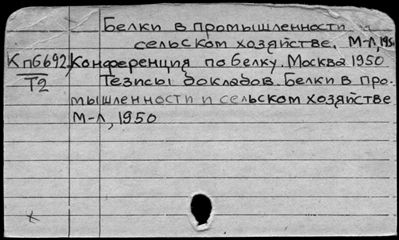 Белки в промышленности и
сельском хозяйстве. М-Л, 1950
Кп6692 Конференция по белку. Москва 1950
Т2 Тезисы докладов. Белки в про-
мышленности и сельском хозяйстве
М-Л, 1950